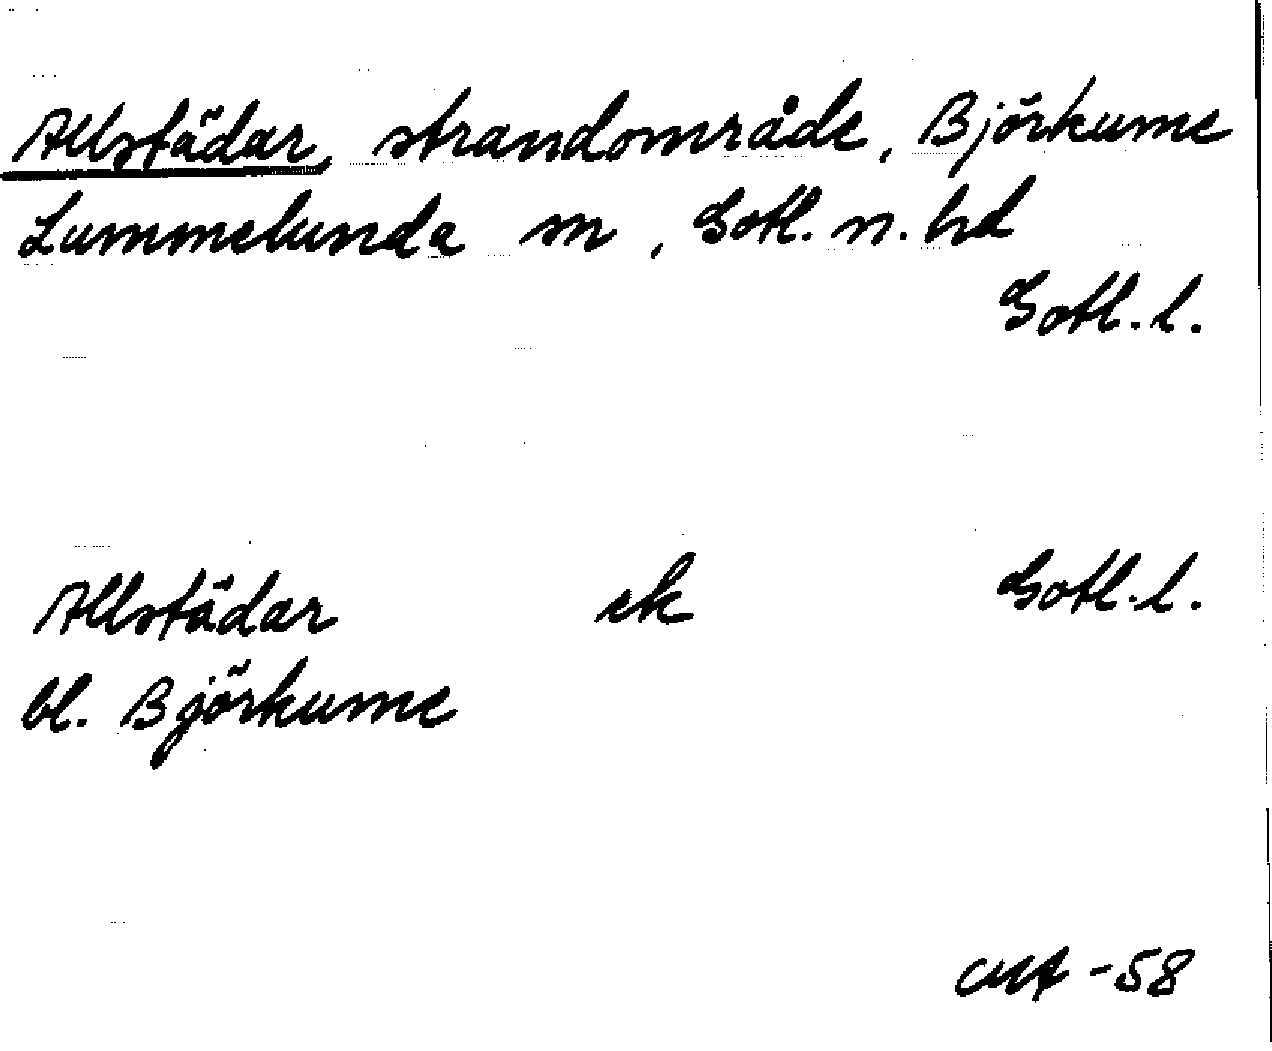 Allstädar, strandområde, Björkume
Lummelunda sn, Gotl. n. hd
Gotl. l.
Allstädar ek Gotl. l.
bl. Björkume
-58